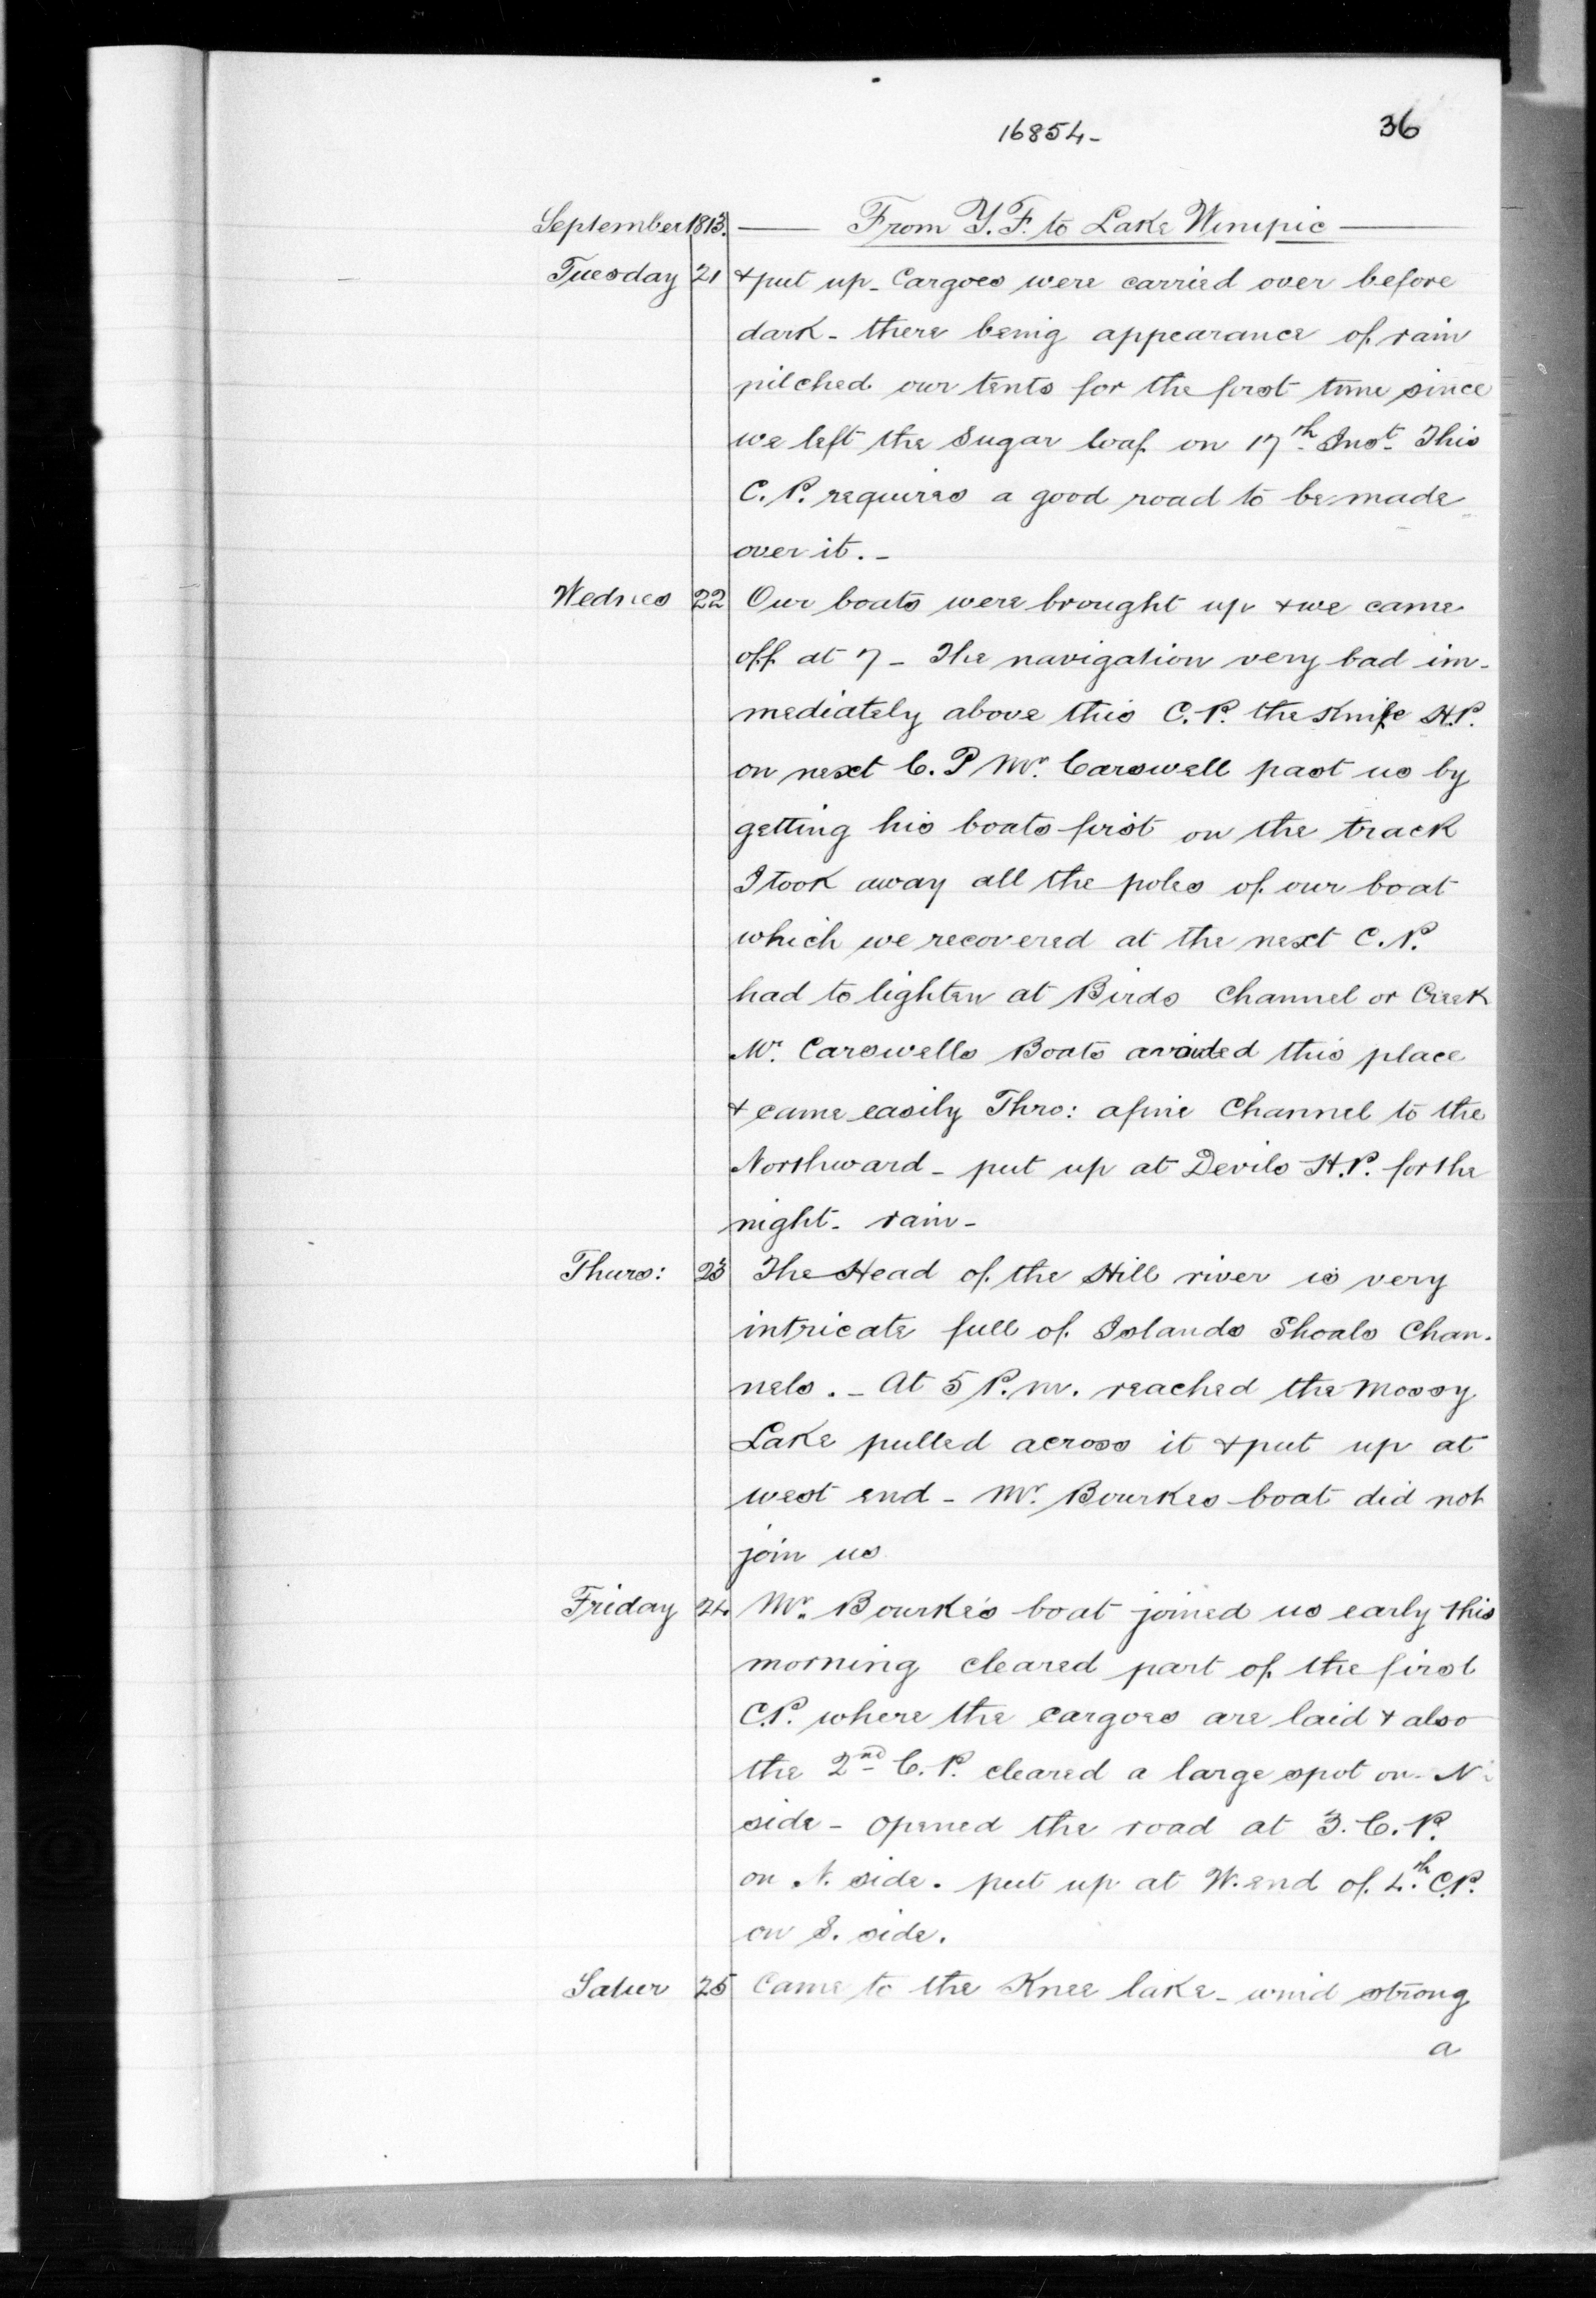 16854-
36
September 1813. From Y.F. to Lake Winipic
Tuesday 21 & put up - Cargoes were carried over before
dark - there being appearance of rain
pitched our tents for the first time since
we left the Sugar loaf on 17th Inst. This
C.P. requires a good road to be made
over it. -
Wednes 22 Our boats were brought up & we came
off at 7 - The navigation very bad im-
mediately above this C.P. the Knife H.P.
on next C.P Mr. Carswell past us by
getting his boats first on the track
I took away all the poles of our boat
which we recovered at the next C.P.
had to lighten at Birds Channel or Creek
Mr. Carswells Boats avoided this place
& came easily Thro: a fine Channel to the
Northward - put up at Devils H.P. for the
night - rain -
Thurs: 23 The Head of the Hill river is very
intricate full of Islands Shoals Chan-
nels. - At 5 P.m. reached the Mossy
Lake pulled across it & put up at
west end - Mr. Bourkes boat did not
join us
Friday 24 Mr. Bourke's boat joined us early this
morning cleared part of the first
C.P. where the cargoes are laid & also
the 2nd C.P. cleared a large spot on N.
side - opened the road at 3. C.P.
on N. side. put up at W. end of 4th C.P.
on S. side.
Satur 25 Came to the Knee lake - wind strong
a